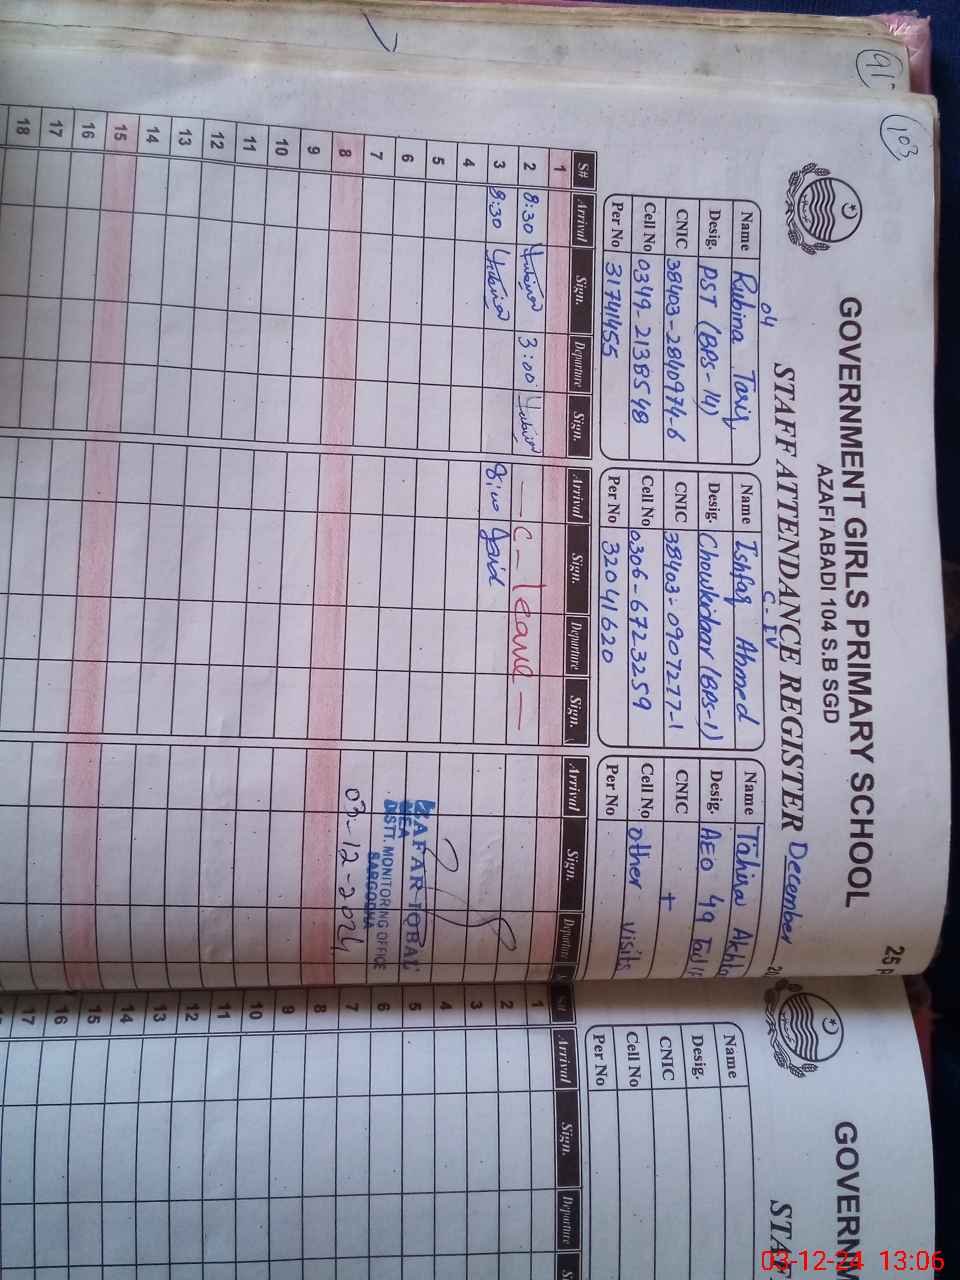 91
103
GOVERNMENT GIRLS PRIMARY SCHOOL
AZAFI ABADI 104 S.B SGD
25 P
STAFF ATTENDANCE REGISTER December 20
04
C-IV
Name Rubina Tariq
Desig. PST (BPS-14)
CNIC 38403-2840974-6
Cell No 0349-2138548
Per No 31741455
Name Ishfaq Ahmed
Desig. Chowkidaar (BPS-1)
CNIC 38403-0907277-1
Cell No 0306-6723259
Per No 32041620
Name Tahira Akhta
Desig. AEO 49
CNIC +
Cell No other visits
Per No
S# Arrival Sign. Departure Sign. Arrival Sign. Departure Sign. Arrival Sign. Departure
1
2 8:30 Rubina 3:00 Rubina — C - leave —
3 8:30 Rubina 8:00
4
5
6
7
8
9
10
11
12
13
14
15
16
17
18
ZAFAR IQBAL
MEA
DISTT. MONITORING OFFICE
SARGODHA
03-12-2024
GOVERNM
STAF
Name
Desig.
CNIC
Cell No
Per No
S# Arrival Sign. Departure S
1
2
3
4
5
6
7
8
9
10
11
12
13
14
15
16
17
03-12-24 13:06